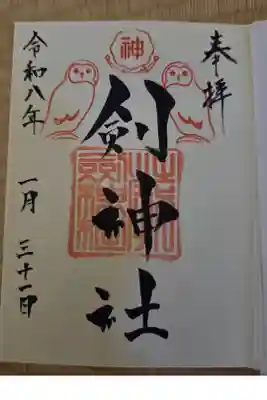 奉拝
神
劔神社
令和八年
一月
三十一日